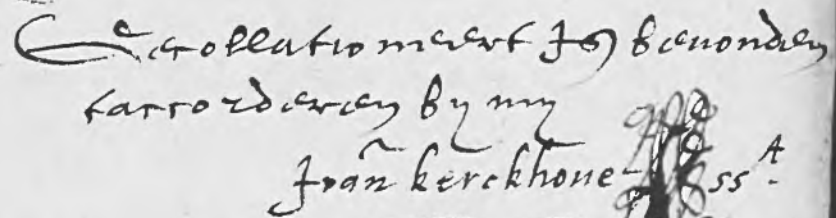 Gecollationneert Is bevonden
taccorderen by my
Joan̄ kerckhove ssᵗ